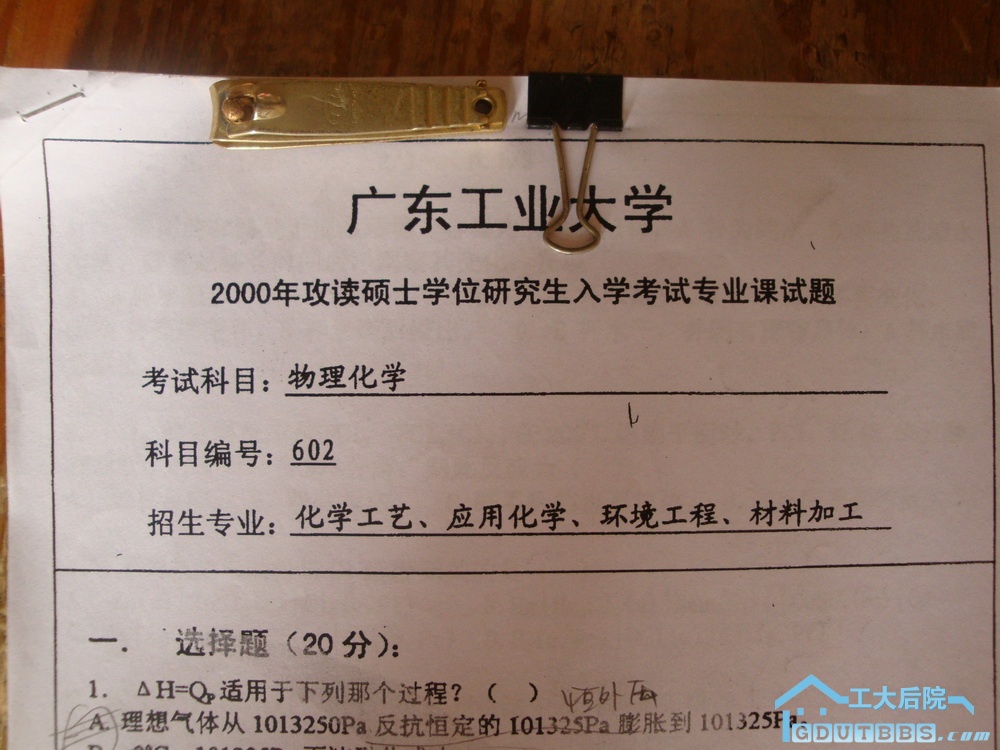 广东工业大学
2000年攻读硕士学位研究生入学考试专业课试题
考试科目：物理化学
科目编号：602
招生专业：化学工艺、应用化学、环境工程、材料加工
一． 选择题（20分）：
1. ΔH=Qp适用于下列那个过程？（ ）恒外压
A. 理想气体从1013250Pa反抗恒定的101325Pa膨胀到101325Pa。
工大后院
GDUTBBS.com